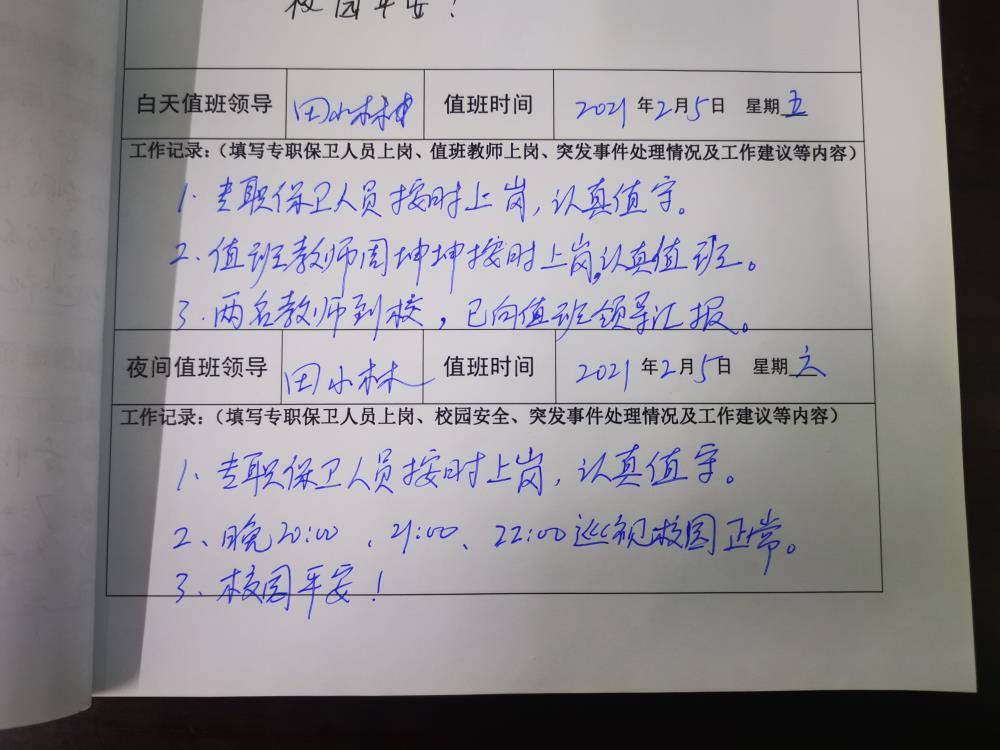 校园平安！
白天值班领导 田小林 值班时间 2021年2月5日 星期五
工作记录：（填写专职保卫人员上岗、值班教师上岗、突发事件处理情况及工作建议等内容）
1. 专职保卫人员按时上岗，认真值守。
2、值班教师周坤坤按时上岗，认真值班。
3、两名教师到校，已向值班领导汇报。
夜间值班领导 田小林 值班时间 2021年2月5日 星期六
工作记录：（填写专职保卫人员上岗、校园安全、突发事件处理情况及工作建议等内容）
1、专职保卫人员按时上岗，认真值守。
2、晚20:00、21:00、22:00巡视校园正常。
3、校园平安！